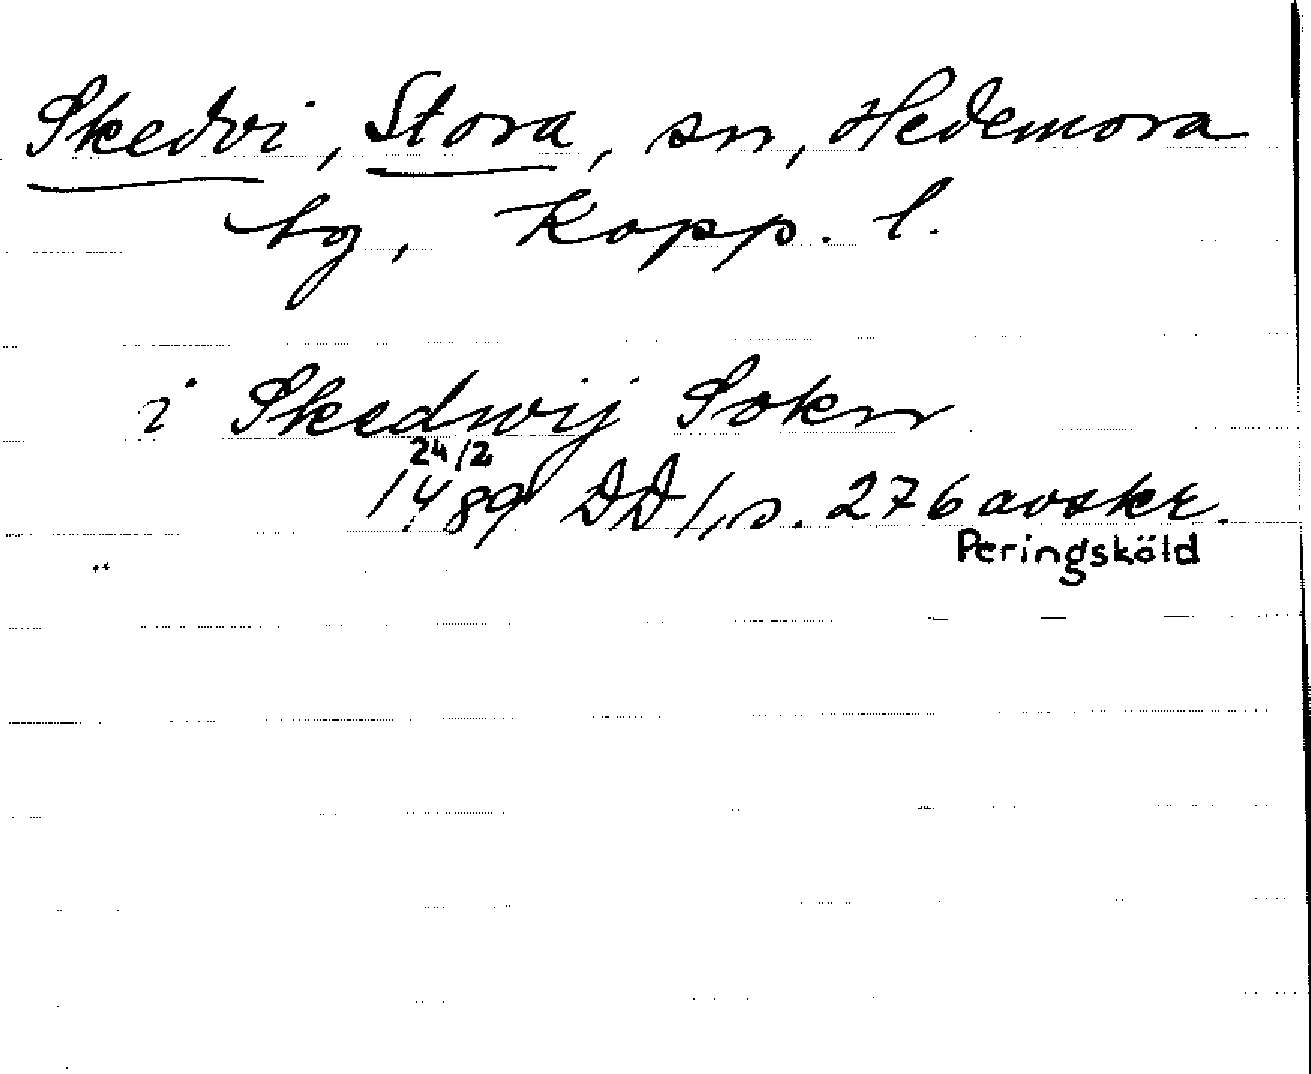 Skedvi, Stora, sn, Hedemora
tg, Kopp. l.
i Skedwij Sokn
24/2
1489 DD 1, s. 276 avskr.
Peringsköld